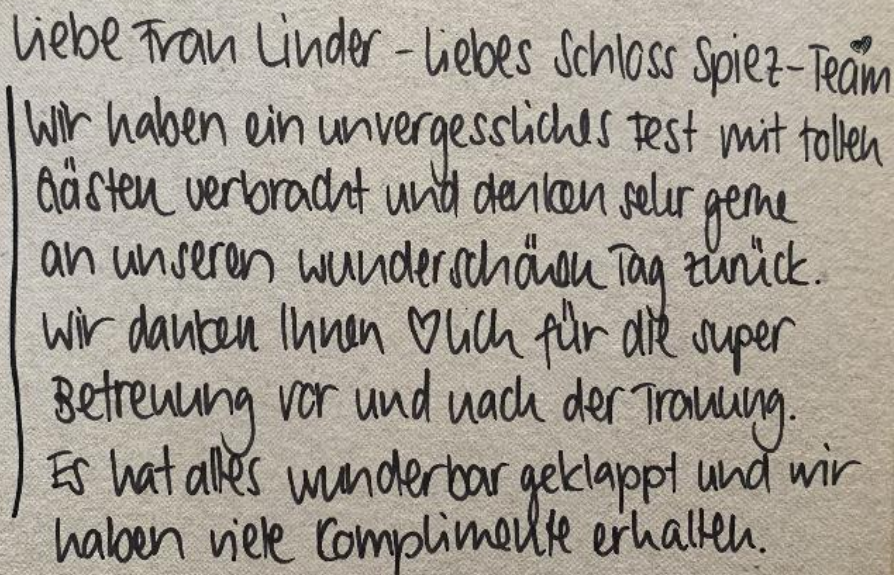 Liebe Frau Linder - Liebes Schloss Spiez-Team
Wir haben ein unvergessliches Fest mit tollen
Gästen verbracht und denken sehr gerne
an unseren wunderschönen Tag zurück.
Wir danken Ihnen ♡lich für die super
Betreuung vor und nach der Trauung.
Es hat alles wunderbar geklappt und wir
haben viele Complimente erhalten.